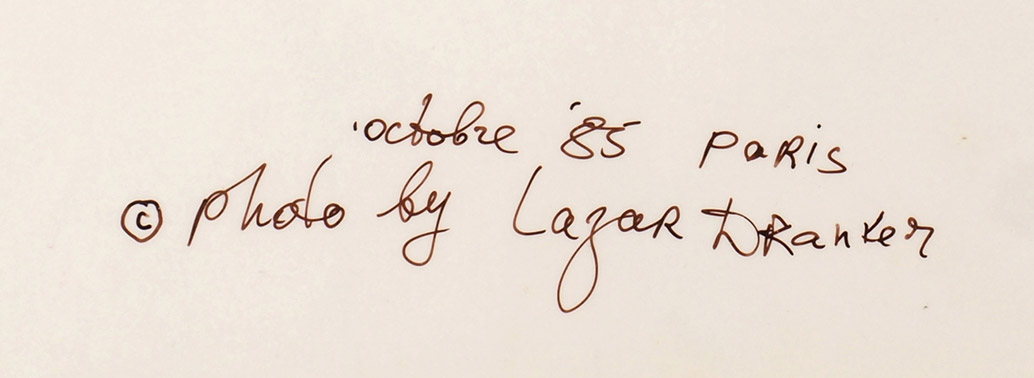 octobre '85 PARiS
© photo by Lazar DRanker